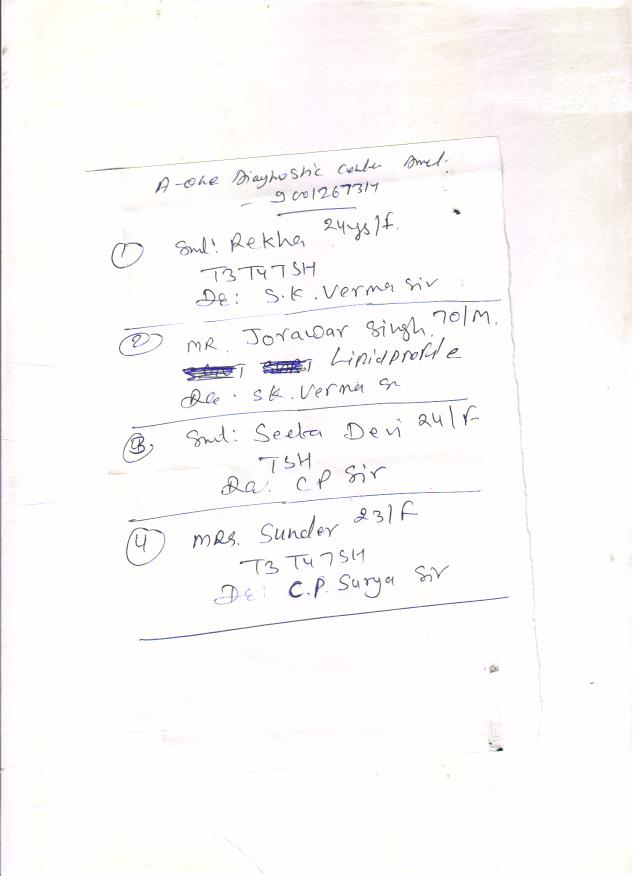 A-one Diagnostic Center
- 9001267314
① Smt: Rekha 24ys/F.
T3 T4 TSH
S.K. Verma Sir
② MR. Jorawar Singh. 70/M.
Lipid profile
SK. Verma
③ Smt: Devi 24/F
TSH
CP Sir
④ MRS. Sunder 23/F
T3 T4 TSH
C.P. Surya Sir